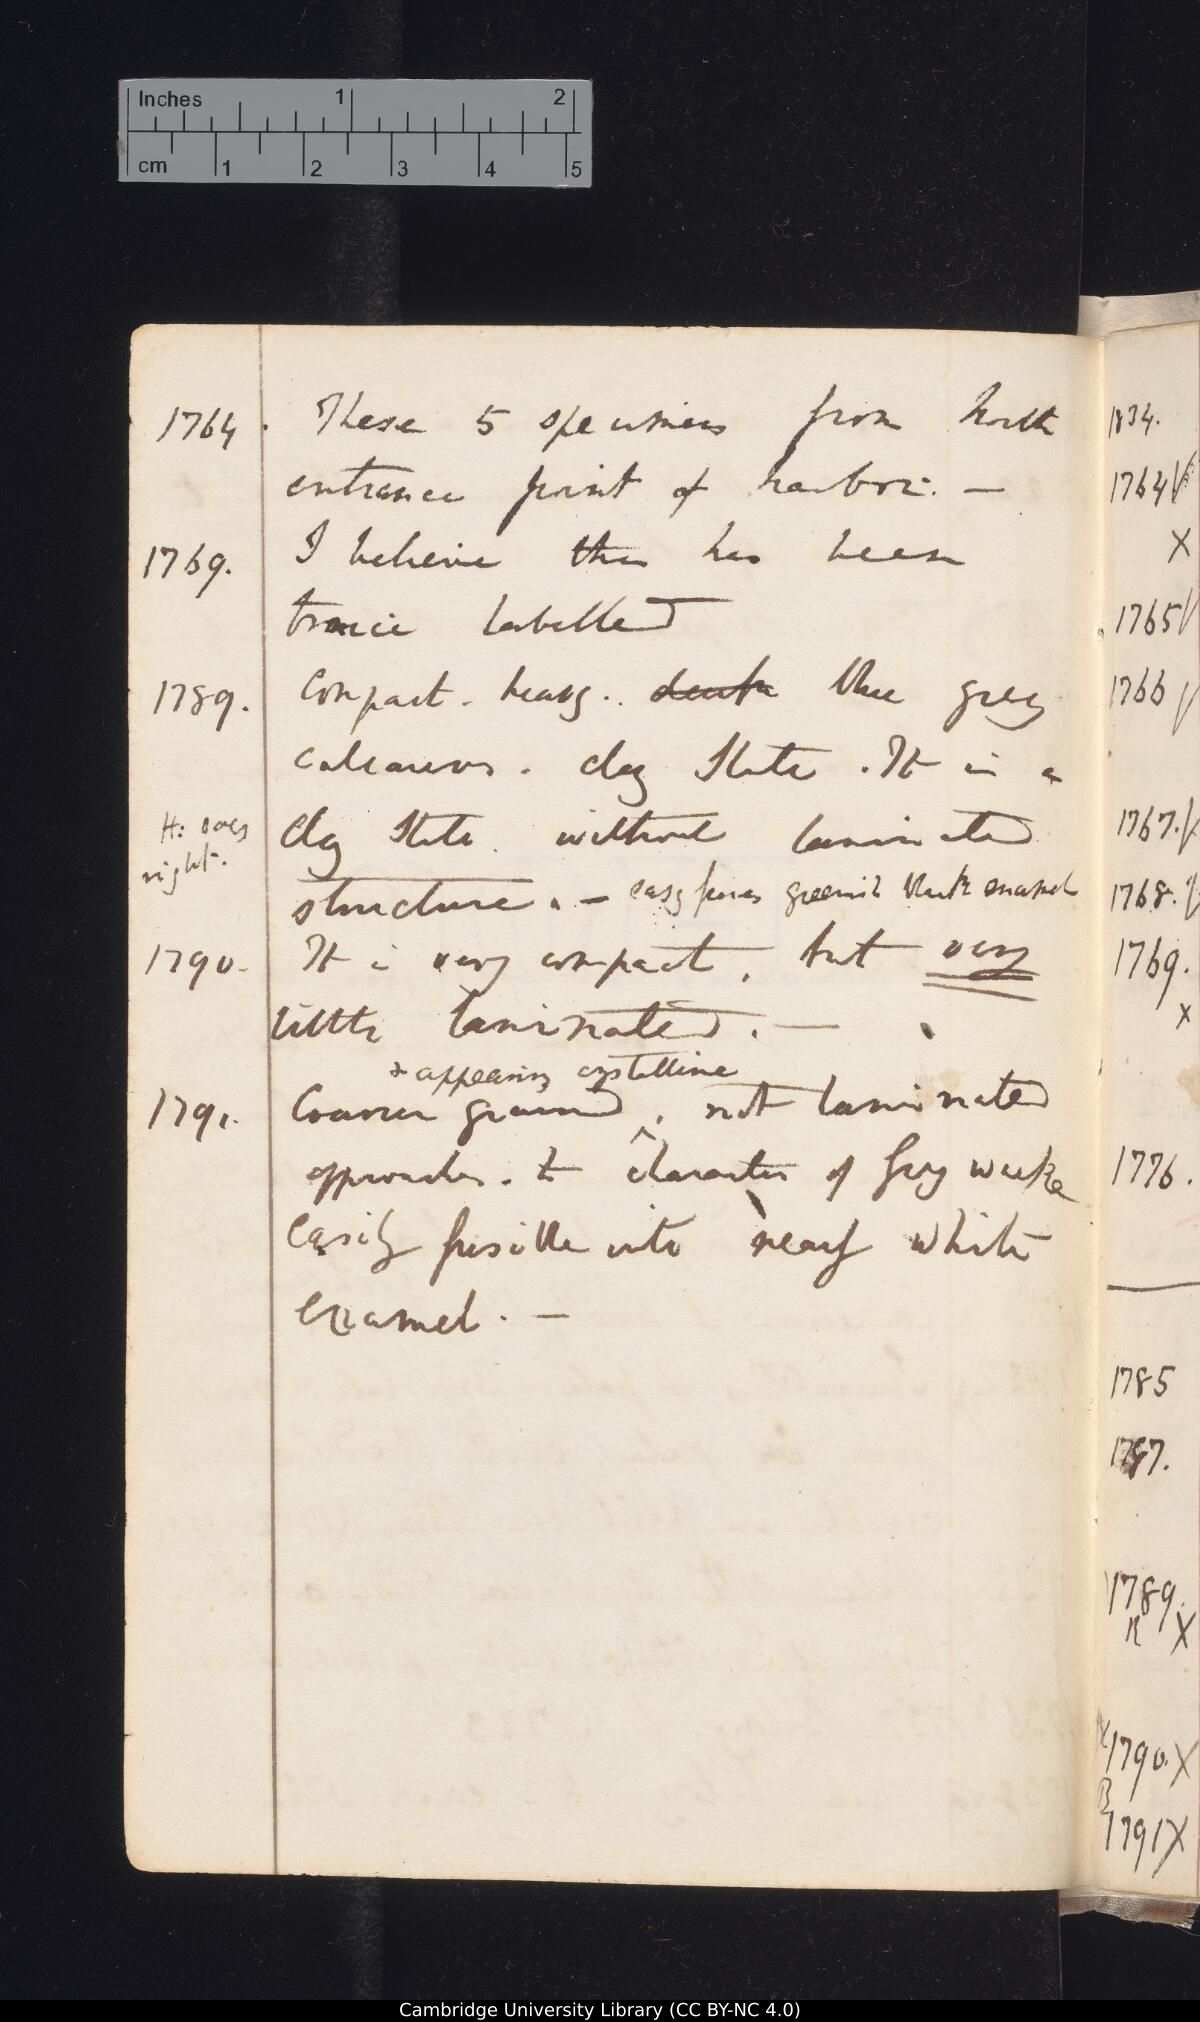 Inches 1 2
cm 1 2 3 4 5
1764. These 5 specimens from North
entrance point of harbor. —
1769. I believe this has been
twice labelled
1789. Compact. heavy. blue grey
calcareous. clay Slate. It is a
H: says
right.
clay Slate without laminated
structure. — easy fuses greenish black enamel
1790. It is very compact, but very
little laminated. —
& appearing crystalline
1791. Coarser grained, not laminated
approaches. to character of Grey wacke
easily fusible into nearly white
enamel. —
1834.
1764
X
1765
1766
1767.
1768.
1769.
x
1776.
1785
1787.
1789.
X
1790. X
1791 X
Cambridge University Library (CC BY-NC 4.0)